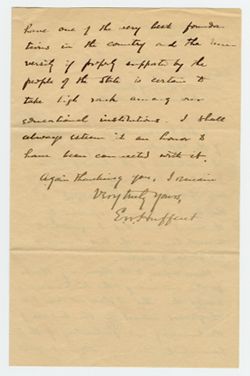 have one of the very best founda
tions in the country and the uni
versity if properly supported by the
people of the state is certain to
take high rank among our
educational institutions. I shall
always esteem it an honor to
have been connected with it.
Again thanking you, I remain
Very truly yours,
E. W. Huffcut